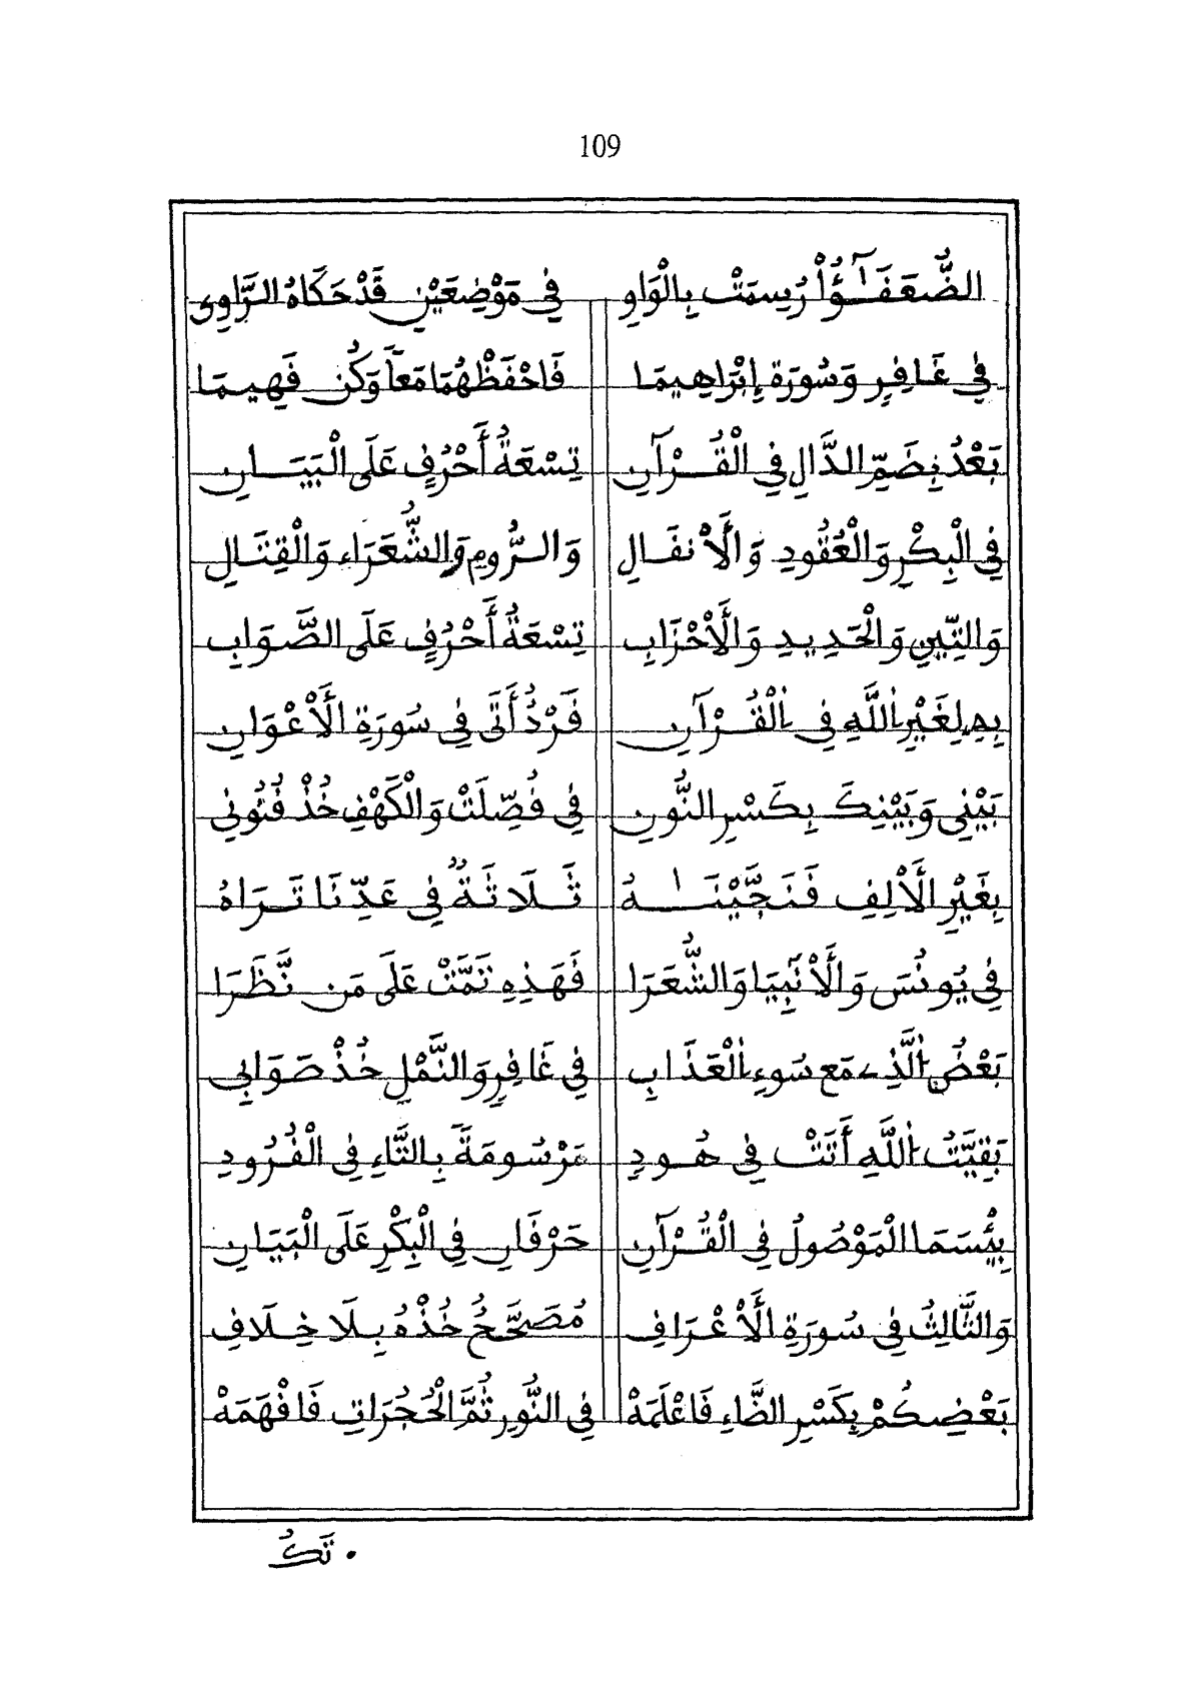 109
الضُّعَفَٰٓؤُاْ رُسِمَتْ بِالْوَاوِ فِي مَوْضِعَيْنِ قَدْ حَكَاهُ الرَّاوِي
فِي غَافِرٍ وَسُورَةِ إِبْرَاهِيمَا فَاحْفَظْهُمَا مَعاً وَكُن فَهِيمَا
بَعْدُ بِضَمِّ الدَّالِ فِي الْقُرْآنِ تِسْعَةُ أَحْرُفٍ عَلَى الْبَيَانِ
فِي الْبِكْرِ وَالْعُقُودِ وَالْأَنفَالِ وَالرُّومِ وَالشُّعَرَاءِ وَالْقِتَالِ
وَالتِّينِ وَالْحَدِيدِ وَالْأَحْزَابِ تِسْعَةُ أَحْرُفٍ عَلَى الصَّوَابِ
بِهِ لِغَيْرِ اللَّهِ فِي الْقُرْآنِ فَرْدٌ أَتَى فِي سُورَةِ الْأَعْوَانِ
بَيْنِي وَبَيْنِكَ بِكَسْرِ النُّونِ فِي فُصِّلَتْ وَالْكَهْفِ خُذْ فُنُونِي
بِغَيْرِ الْأَلِفِ فَنَجَّيْنَٰهُ ثَلَاثَةٌ فِي عَدِّنَا تَرَاهُ
فِي يُونُسَ وَالْأَنْبِيَا وَالشُّعَرَا فَهَذِهِ تَمَّتْ عَلَى مَن نَّظَرَا
بَعْضُ الَّذِي مَعَ سُوءِ الْعَذَابِ فِي غَافِرٍ وَالنَّمْلِ خُذْ صَوَابِي
بَقِيَّتُ اللَّهِ أَتَتْ فِي هُودِ مَرْسُومَةً بِالتَّاءِ فِي الْفُرُودِ
بِئْسَمَا الْمَوْصُولُ فِي الْقُرْآنِ حَرْفَانِ فِي الْبِكْرِ عَلَى الْبَيَانِ
وَالثَّالِثُ فِي سُورَةِ الْأَعْرَافِ مُصَحَّحٌ خُذْهُ بِلَا خِلَافِ
بَعْضِكُمْ بِكَسْرِ الضَّاءِ فَاعْلَمَهْ فِي النُّورِ ثُمَّ الْحُجُرَاتِ فَافْهَمَهْ